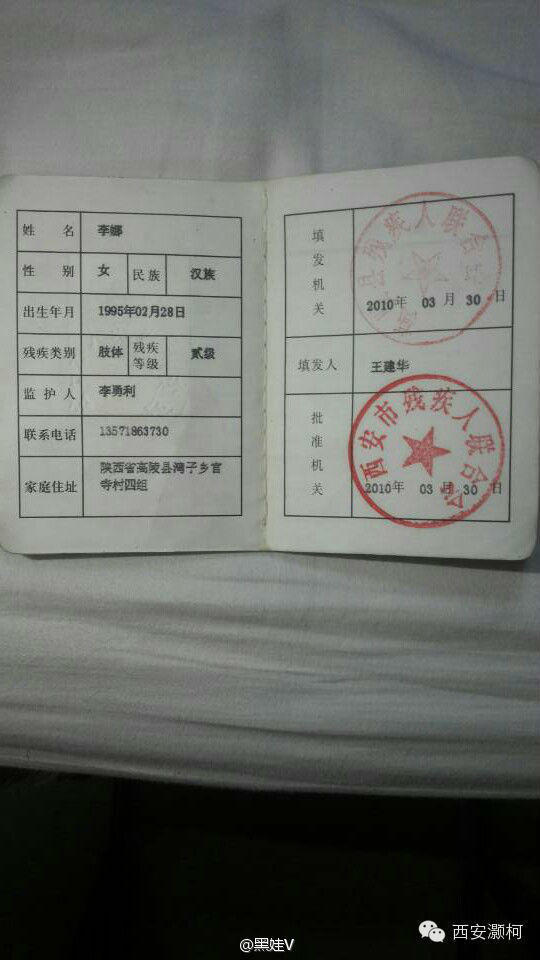 姓 名 李娜
性 别 女 民族 汉族
出生年月 1995年02月28日
残疾类别 肢体 残疾等级 贰级
监护人 李勇利
联系电话 13571863730
家庭住址 陕西省高陵县湾子乡官
寺村四组
填发机关 县残疾人联合会
2010年 03 月 30 日
填发人 王建华
批准机关 西安市残疾人联合会
2010年 03 月 30 日
@黑娃V
西安灏柯